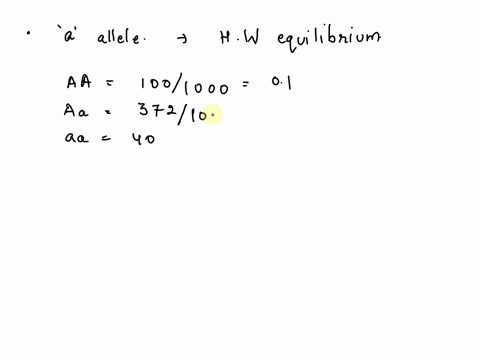 • 'a' allele. → H.W equilibrium
AA = 100/1000 = 0.1
Aa = 372/10.
aa = 40